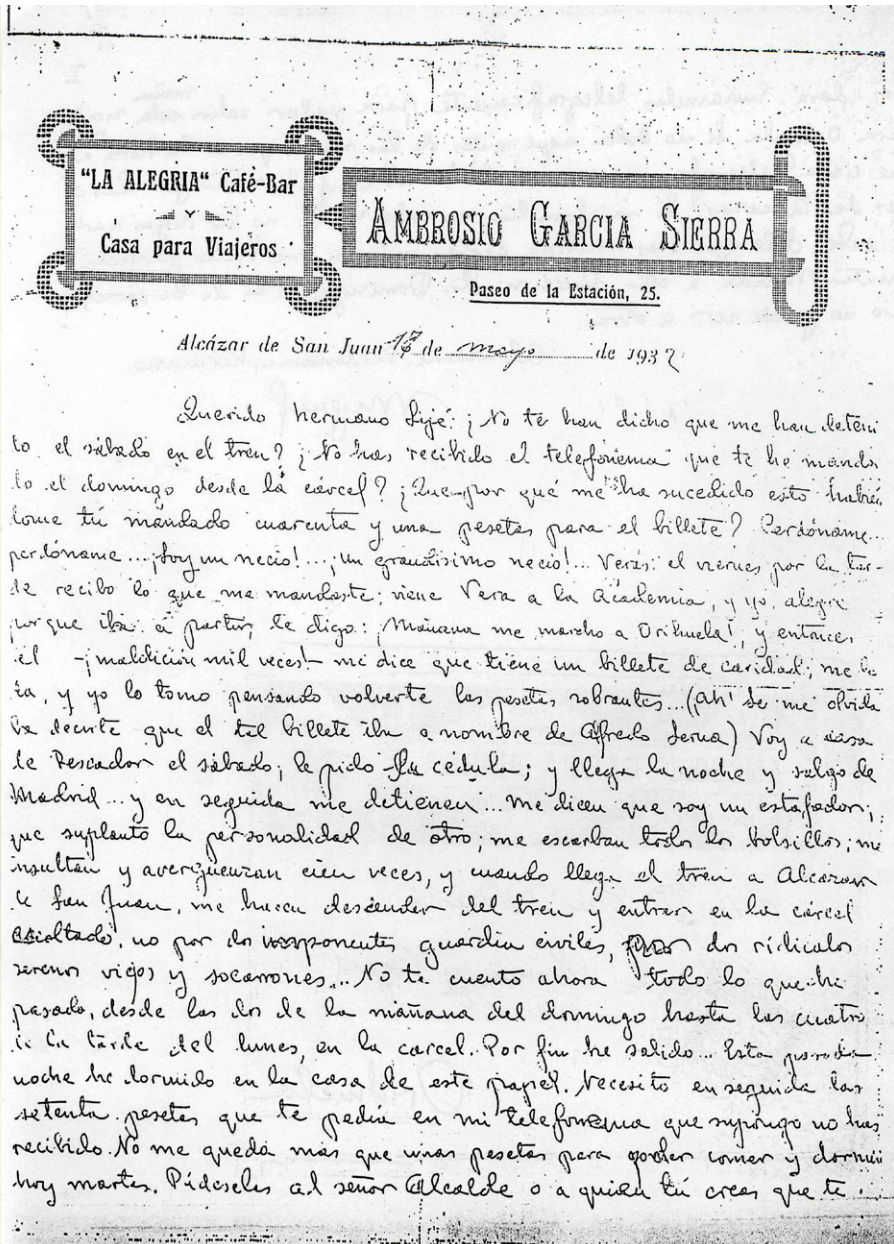 "LA ALEGRIA" Café-Bar
Y
Casa para Viajeros
AMBROSIO GARCIA SIERRA
Paseo de la Estación, 25.
Alcázar de San Juan 17 de mayo de 1932
Querido hermano Sijé: ¿No te han dicho que me han deteni
do el sábado en el tren? ¿No has recibido el telefonema que te he manda
do el domingo desde la cárcel? ¿Que por qué me ha sucedido esto habién
dome tú mandado cuarenta y una pesetas para el billete? Perdóname...
perdóname... ¡Soy un necio!... ¡un grandísimo necio!... Verás: el viernes por la tar-
de recibo lo que me mandaste; viene Vera a la Academia, y yo, alegre
porque iba a partir, le digo: ¡Mañana me marcho a Orihuela!, y entonces
él -¡maldición mil veces!- me dice que tiene un billete de caridad; me lo
da, y yo lo tomo pensando volverte las pesetas sobrantes... (¡Ah! Se me olvida
ba decirte que el tal billete iba a nombre de Alfredo Serna) Voy a casa
de Pescador el sábado; le pido la cédula; y llega la noche y salgo de
Madrid... y en seguida me detienen... Me dicen que soy un estafador;
que suplanto la personalidad de otro; me escarban todos los bolsillos; me
insultan y avergüenzan cien veces, y cuando llega el tren a Alcázar
de San Juan, me hacen descender del tren y entrar en la cárcel
escoltado, no por dos imponentes guardia civiles, por dos ridículos
serenos viejos y socarrones... No te cuento ahora todo lo que he
pasado, desde las dos de la mañana del domingo hasta las cuatro
de la tarde del lunes, en la carcel. Por fin he salido... Esta pasada
noche he dormido en la casa de este papel. Necesito en seguida las
setenta pesetas que te pedía en mi telefonema que supongo no has
recibido. No me queda más que unas pesetas para poder comer y dormir
hoy martes. Pídeselas al señor Alcalde o a quien tú creas que te